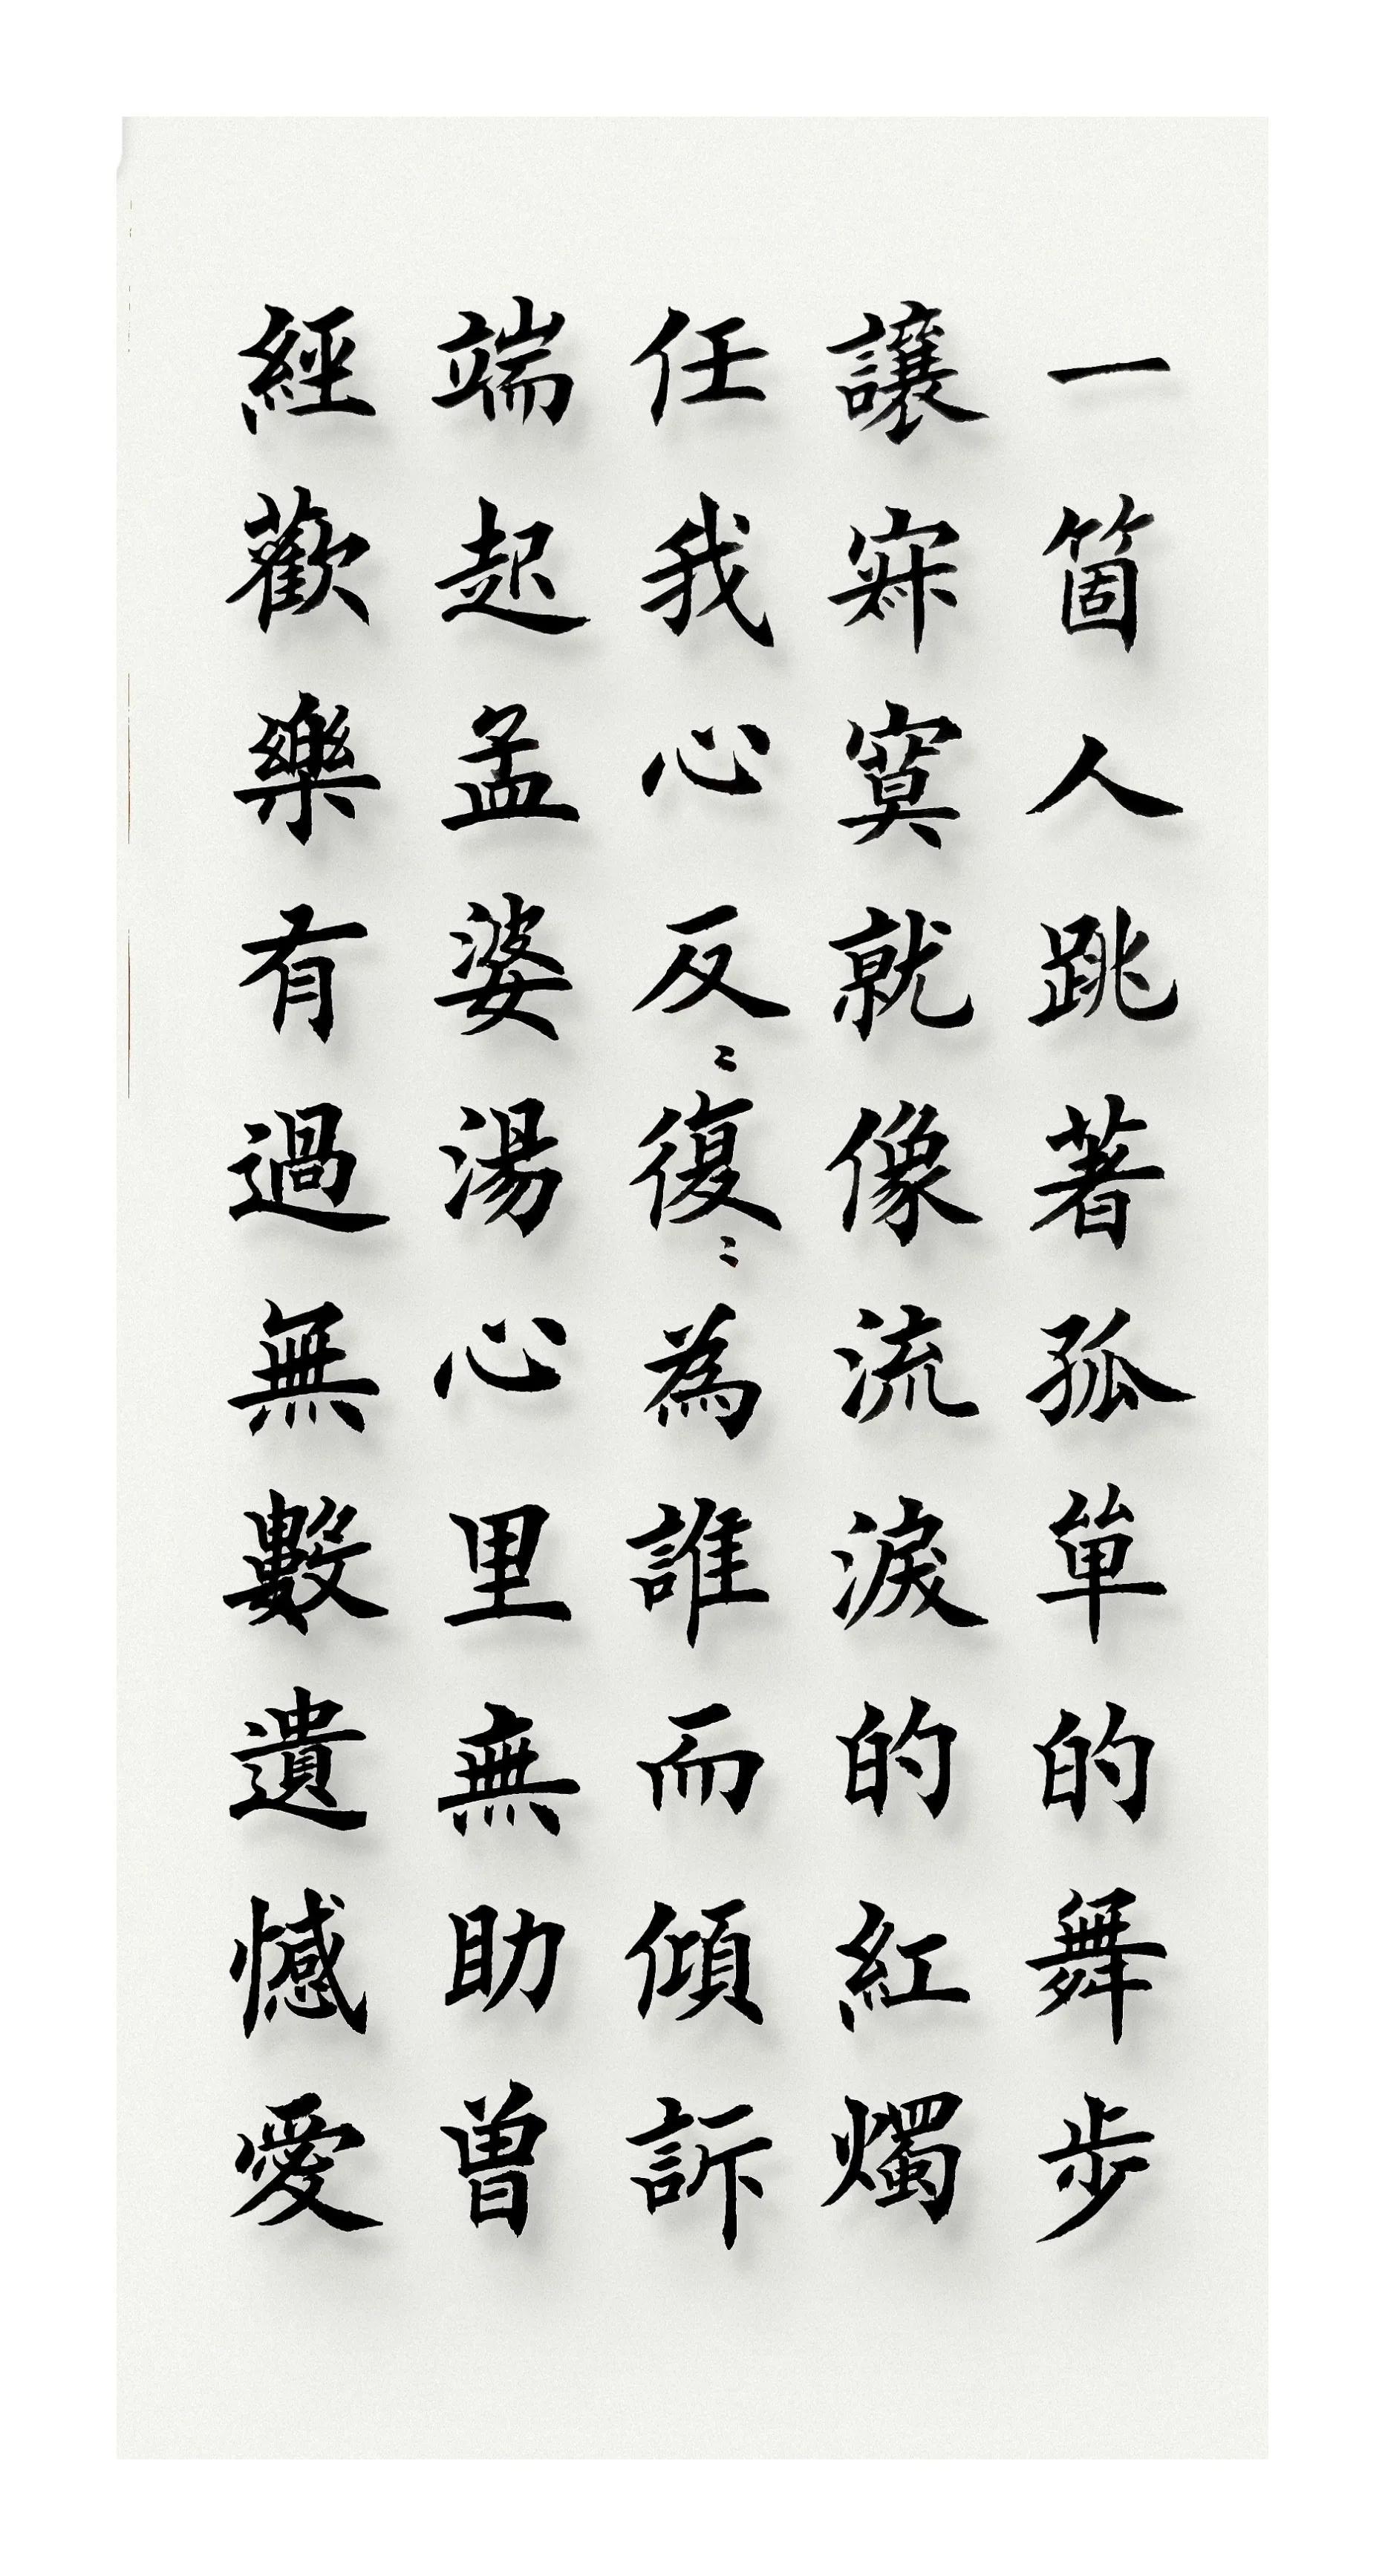 一箇人跳著孤單的舞步
讓寂寞就像流淚的紅燭
任我心反〻復〻為誰而傾訴
端起孟婆湯心里無助曾
經歡樂有過無數遺憾愛